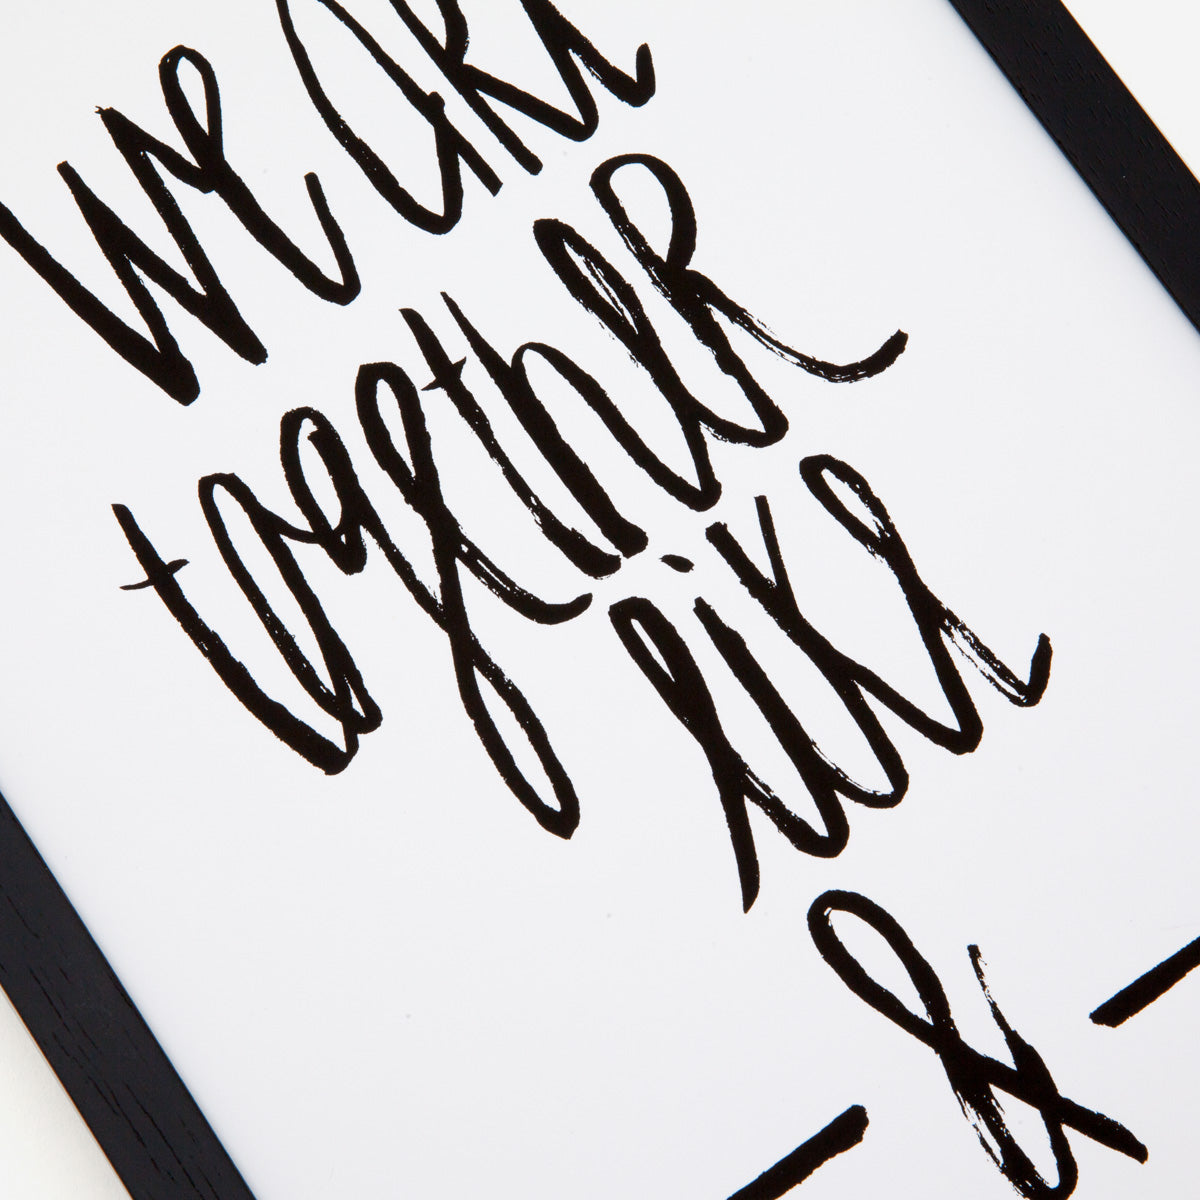 we are
together
like
- & -